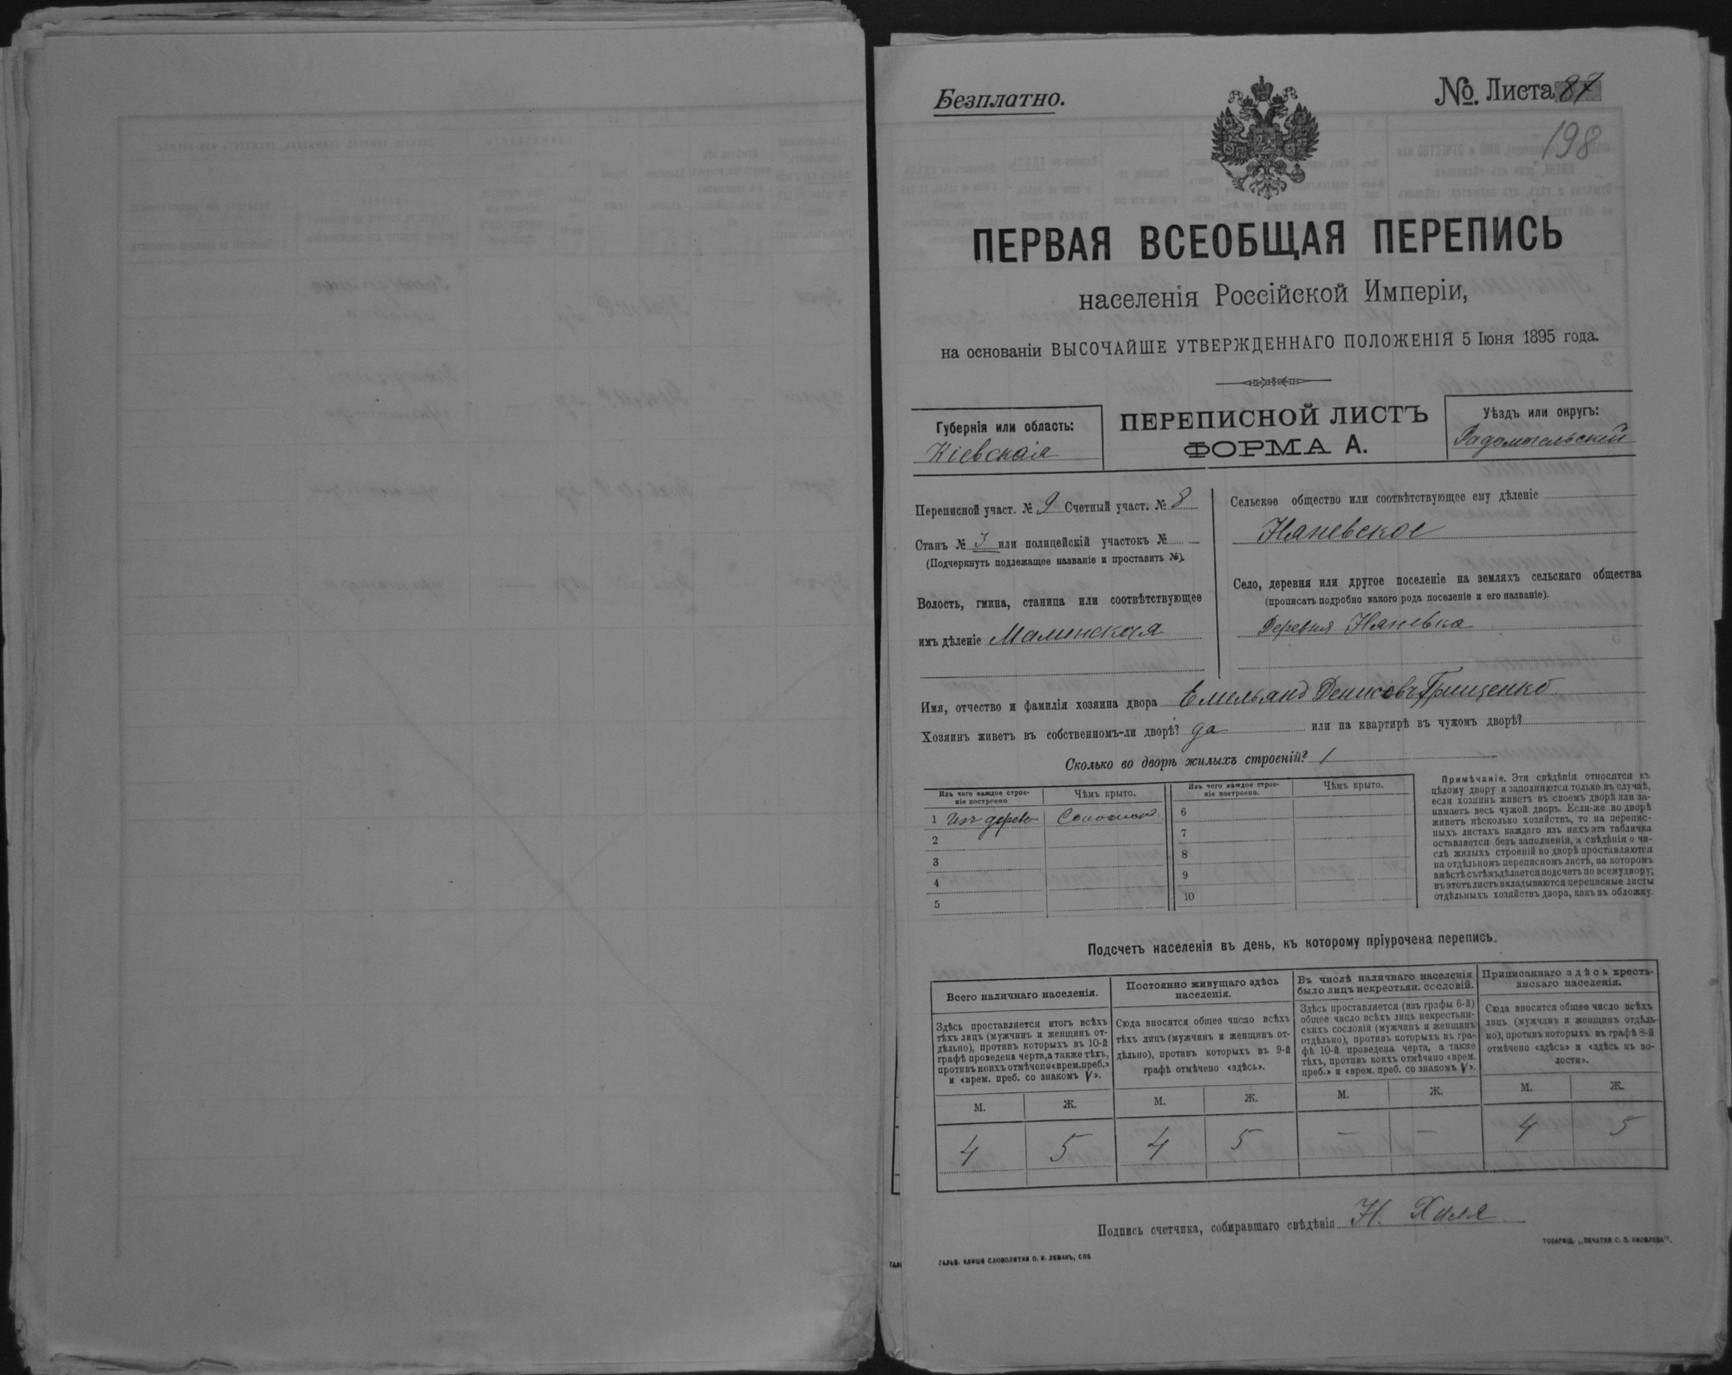 Безплатно.
№. Листа 87
198
ПЕРВАЯ ВСЕОБЩАЯ ПЕРЕПИСЬ
населенія Россійской Имперіи,
на основаніи ВЫСОЧАЙШЕ УТВЕРЖДЕННАГО ПОЛОЖЕНІЯ 5 Іюня 1895 года.
Губернія или область:
Кіевская
ПЕРЕПИСНОЙ ЛИСТЪ
ФОРМА А.
Уѣздъ или округъ:
Радомысльскій
Переписной участ. № 9 Счетный участ. № 8
Станъ № 3 или полицейскій участокъ №
(Подчеркнуть подлежащее названіе и проставить №).
Волость, гмина, станица или соотвѣтствующее
имъ дѣленіе Малинская
Сельское общество или соотвѣтствующее ему дѣленіе
Няневское
Село, деревня или другое поселеніе на земляхъ сельскаго общества
(прописать подробно какого рода поселеніе и его названіе).
Деревня Няневка
Имя, отчество и фамилія хозяина двора Емельянъ Денисовъ Грищенко
Хозяинъ живетъ въ собственномъ-ли дворѣ? да или на квартирѣ въ чужомъ дворѣ?
Сколько во дворѣ жилыхъ строеній? 1
Изъ чего каждое строе-
ніе построено
Чѣмъ крыто.
1 Изъ дерева Соломой
2
3
4
5
Изъ чего каждое строе-
ніе построено.
Чѣмъ крыто.
6
7
8
9
10
Примѣчаніе. Эти свѣдѣнія относятся къ
цѣлому двору и заполняются только въ случаѣ,
если хозяинъ живетъ въ своемъ дворѣ или за-
нимаетъ весь чужой дворъ. Если-же во дворѣ
живетъ нѣсколько хозяйствъ, то на перепис-
ныхъ листахъ каждаго изъ нихъ эта табличка
оставляется безъ заполненій, а свѣдѣнія о чи-
слѣ жилыхъ строеній во дворѣ проставляются
на отдѣльномъ переписномъ листѣ, на которомъ
вмѣстѣ съ тѣмъ дѣлается подсчетъ по всему двору;
въ этотъ листъ вкладываются переписные листы
отдѣльныхъ хозяйствъ двора, какъ въ обложку.
Подсчетъ населенія въ день, къ которому пріурочена перепись.
Всего наличнаго населенія.
Здѣсь проставляется итогъ всѣхъ
тѣхъ лицъ (мужчинъ и женщинъ от-
дѣльно), противъ которыхъ въ 10-й
графѣ проведена черта, а также тѣхъ,
противъ коихъ отмѣчено «врем. преб.»
и «врем. преб. со знакомъ V».
М. Ж.
4 5
Постоянно живущаго здѣсь
населенія.
Сюда вносится общее число всѣхъ
тѣхъ лицъ (мужчинъ и женщинъ от-
дѣльно), противъ которыхъ въ 9-й
графѣ отмѣчено «здѣсь».
М. Ж.
4 5
Въ числѣ наличнаго населенія
было лицъ некрестьян. сословій.
Здѣсь проставляется (изъ графы 6-й)
общее число всѣхъ лицъ некрестьян-
скихъ сословій (мужчинъ и женщинъ
отдѣльно), противъ которыхъ въ гра-
фѣ 10-й проведена черта, а также
тѣхъ, противъ коихъ отмѣчено «врем.
преб.» и «врем. преб. со знакомъ V».
М. Ж.
— —
Приписаннаго здѣсь кресть-
янскаго населенія.
Сюда вносится общее число всѣхъ
лицъ (мужчинъ и женщинъ отдѣль-
но), противъ которыхъ въ графѣ 8-й
отмѣчено «здѣсь» и «здѣсь къ во-
лости».
М. Ж.
4 5
Подпись счетчика, собиравшаго свѣдѣнія Н. Хиля
ГАЛЬВ. КЛИШЕ СЛОВОЛИТНИ О. И. ЛЕМАНЪ, СПБ
ТОВАРИЩ. „ПЕЧАТНЯ С. П. ЯКОВЛЕВА".